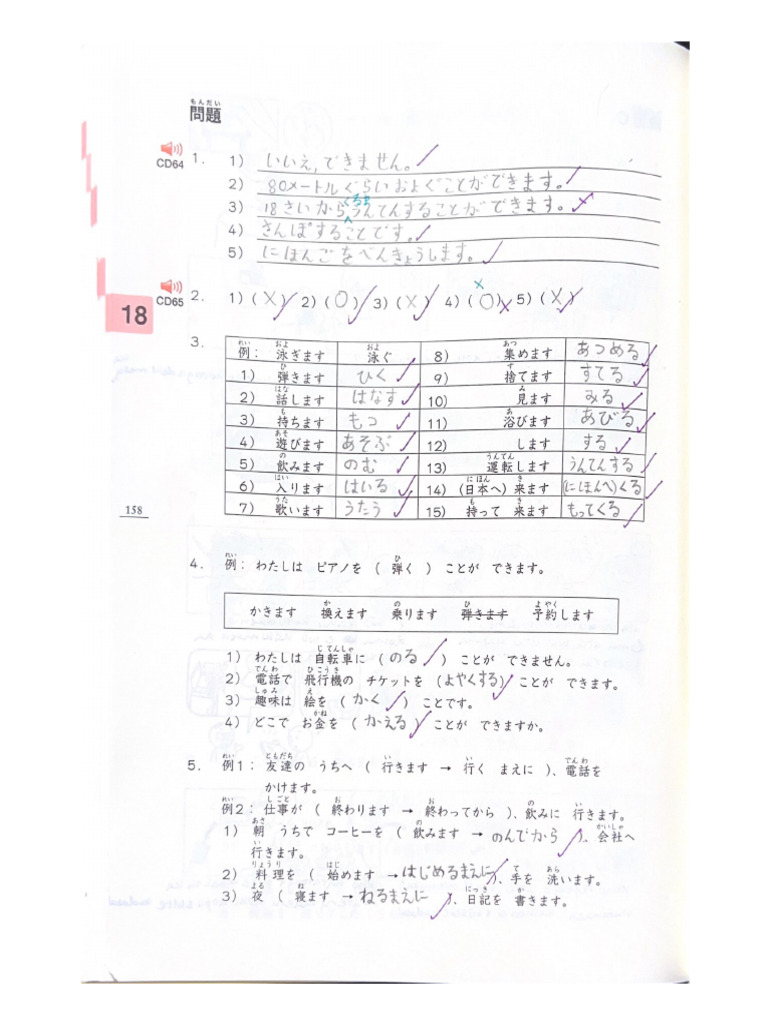 もんだい
問題
CD64 1. 1) いいえ,できません。
2) 80メートルぐらいおよぐことができます。
くるま
3) 18さいからうんてんすることができます。
4) さんぽすることです。
5) にほんごをべんきょうします。
CD65 2. 1) (X) 2) (O) 3) (X) 4) (O) X 5) (X)
18
3.
れい およ およ あつ
例: 泳ぎます 泳ぐ 8) 集めます あつめる
ひ す
1) 弾きます ひく 9) 捨てます すてる
はな み
2) 話します はなす 10) 見ます みる
も あ
3) 持ちます もつ 11) 浴びます あびる
あそ
4) 遊びます あそぶ 12) します する
の うんてん
5) 飲みます のむ 13) 運転します うんてんする
はい にほん き
6) 入ります はいる 14) (日本へ) 来ます (にほんへ)くる
うた も き
7) 歌います うたう 15) 持って 来ます もってくる
158
れい ひ
4. 例: わたしは ピアノを ( 弾く ) ことが できます。
か の ひ よやく
かきます 換えます 乗ります 弾きます 予約します
じてんしゃ
1) わたしは 自転車に ( のる ) ことが できません。
でんわ ひこうき
2) 電話で 飛行機の チケットを (よやくする) ことが できます。
しゅみ え
3) 趣味は 絵を ( かく ) ことです。
かね
4) どこで お金を ( かえる ) ことが できますか。
れい ともだち い い でんわ
5. 例1: 友達の うちへ ( 行きます → 行く まえに )、電話を
かけます。
れい しごと お お の い
例2: 仕事が ( 終わります → 終わってから )、飲みに 行きます。
あさ の かいしゃ
1) 朝 うちで コーヒーを ( 飲みます → のんでから )、会社へ
い
行きます。
りょうり はじ て あら
2) 料理を ( 始めます → はじめるまえに )、手を 洗います。
よる ね にっき か
3) 夜 ( 寝ます → ねるまえに )、日記を 書きます。